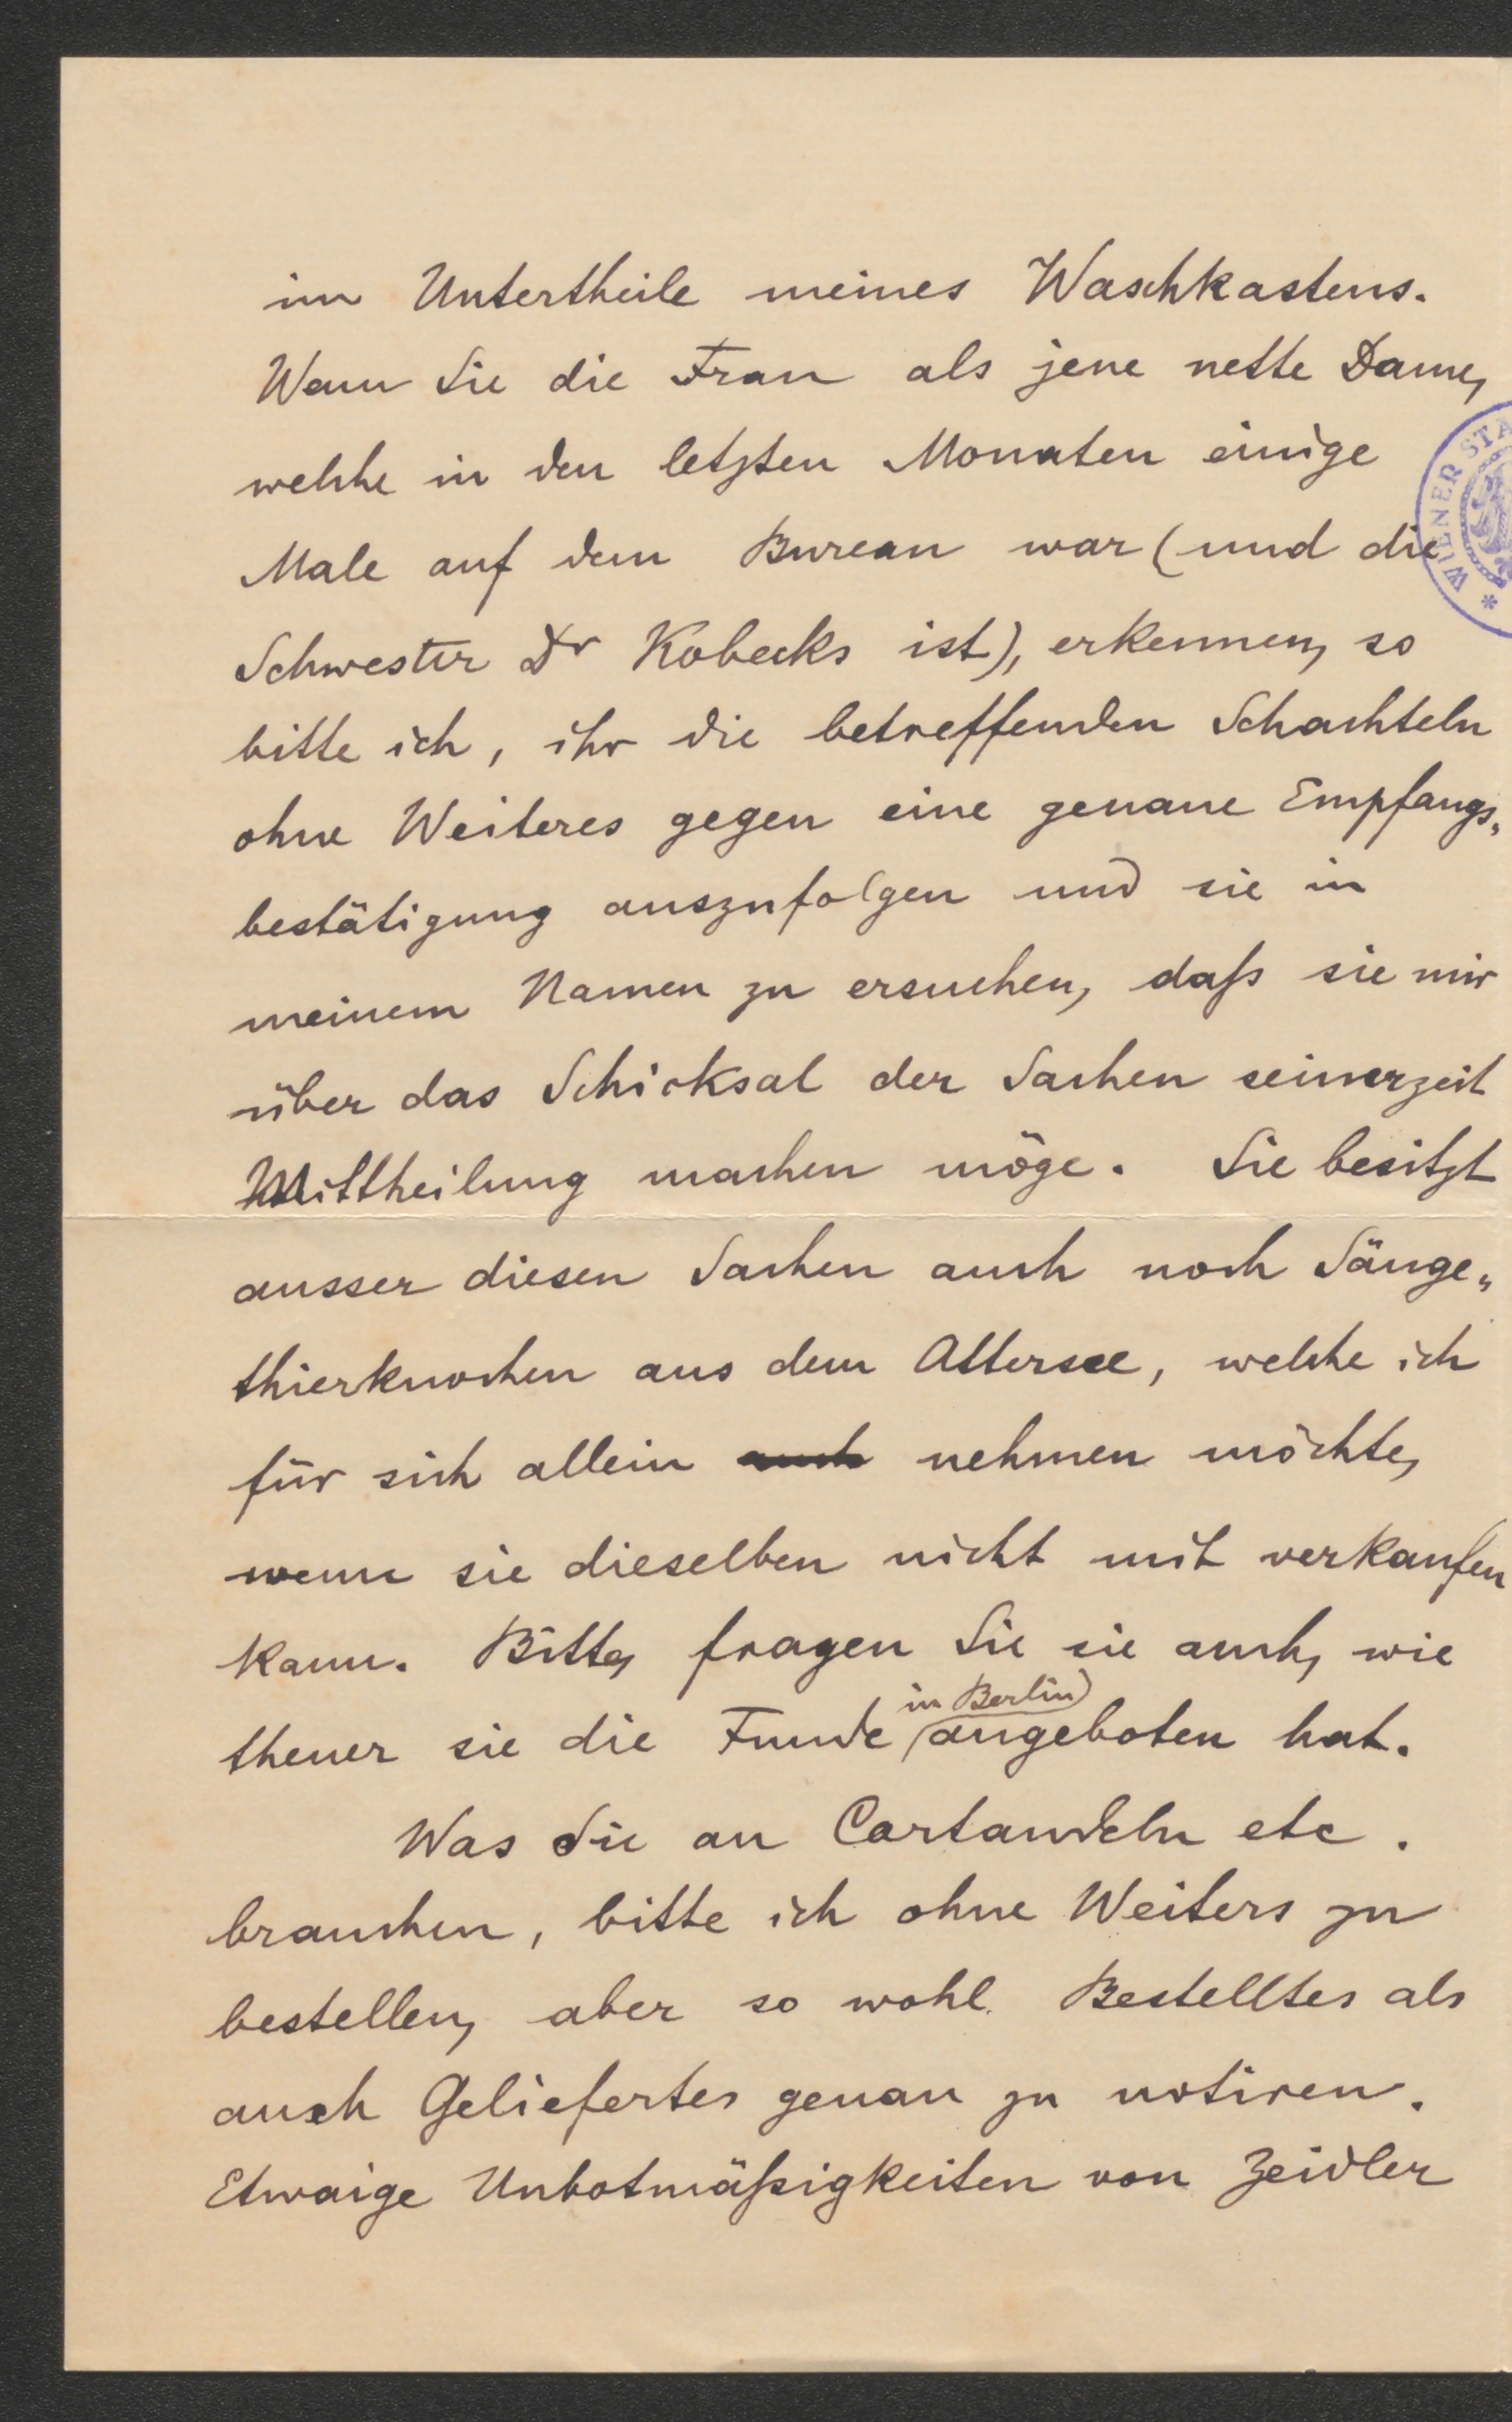 im Untertheile meines Waschkastens.
Wenn Sie die Frau als jene nette Dame,
welche in den letzten Monaten einige
Male auf dem Bureau war (und die
Schwester Dr Kobecks ist), erkennen, so
bitte ich, ihr die betreffenden Schachteln
ohne Weiteres gegen eine genaue Empfangs„
bestätigung auszufolgen und sie in
meinem Namen zu ersuchen, daß sie mir
über das Schicksal der Sachen seinerzeit
Mittheilung machen möge. Sie besitzt
ausser diesen Sachen auch noch Säuge„
thierknochen aus dem Attersee, welche ich
für sich allein auch nehmen möchte,
wenn sie dieselben nicht mit verkaufen
kann. Bitte, fragen Sie sie auch, wie
in Berlin
theuer sie die Funde angeboten hat.
Was Sie an Cartandeln etc.
brauchen, bitte ich ohne Weiters zu
bestellen, aber so wohl Bestelltes als
auch Geliefertes genau zu notiren.
Etwaige Unbotmäßigkeiten von Zeidler
WIENER STA